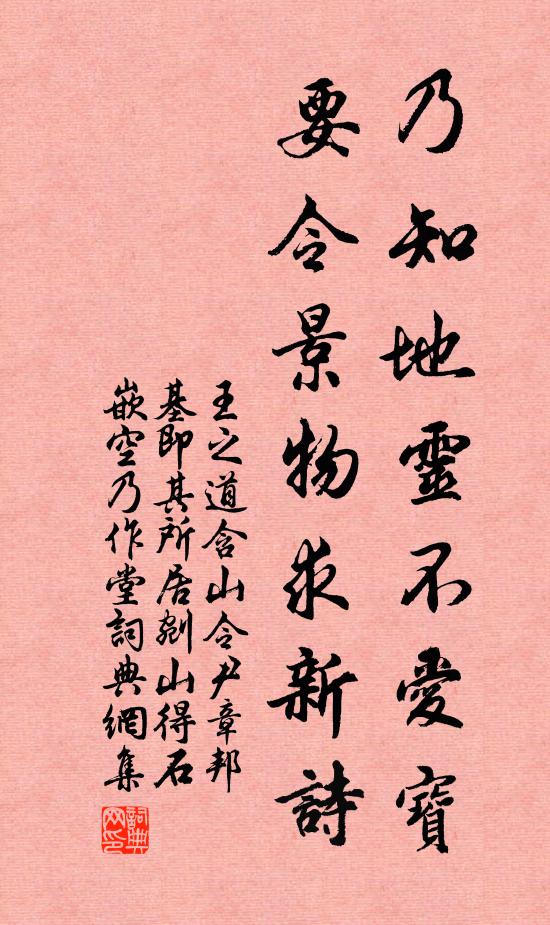 乃知地靈不愛寶
要令景物求新詩
王之道含山令尹章邦
基即其所居剜山得石
嵌空乃作堂詞典網集
詞典
网印